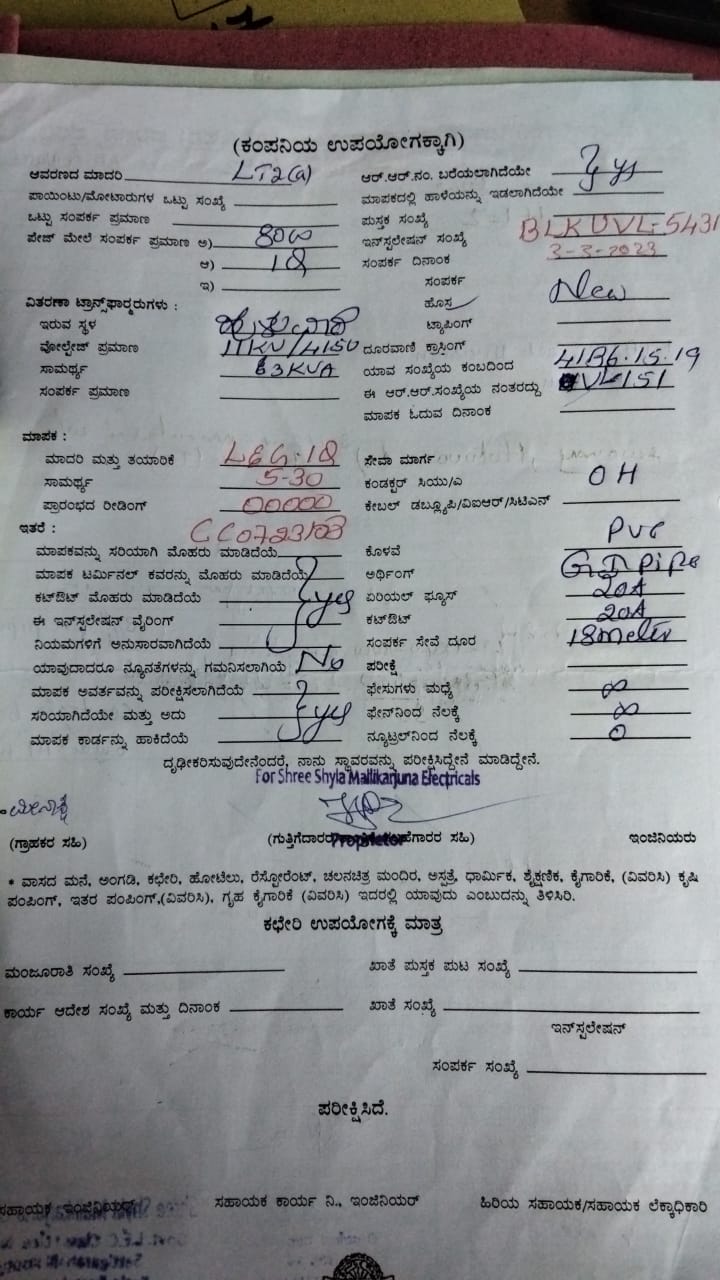 (ಕಂಪನಿಯ ಉಪಯೋಗಕ್ಕಾಗಿ)
ಆವರಣದ ಮಾದರಿ LT2(a)
ಪಾಯಿಂಟು/ಮೋಟಾರುಗಳ ಒಟ್ಟು ಸಂಖ್ಯೆ
ಒಟ್ಟು ಸಂಪರ್ಕ ಪ್ರಮಾಣ
ಪೇಜ್ ಮೇಲೆ ಸಂಪರ್ಕ ಪ್ರಮಾಣ ಅ) 80W
ಆ) 1Q
ಇ)
ವಿತರಣಾ ಟ್ರಾನ್ಸ್‌ಫಾರ್ಮರುಗಳು :
ಇರುವ ಸ್ಥಳ
ವೋಲ್ಟೇಜ್ ಪ್ರಮಾಣ 11KV/415V
ಸಾಮರ್ಥ್ಯ 63KVA
ಸಂಪರ್ಕ ಪ್ರಮಾಣ
ಆರ್.ಆರ್.ನಂ. ಬರೆಯಲಾಗಿದೆಯೇ } ys
ಮಾಪಕದಲ್ಲಿ ಹಾಳೆಯನ್ನು ಇಡಲಾಗಿದೆಯೇ
ಪುಸ್ತಕ ಸಂಖ್ಯೆ
ಇನ್‌ಸ್ಟಲೇಷನ್ ಸಂಖ್ಯೆ BLKUVL-5431
ಸಂಪರ್ಕ ದಿನಾಂಕ 3-3-2023
ಸಂಪರ್ಕ
ಹೊಸ New
ಟ್ಯಾಪಿಂಗ್
ದೂರವಾಣಿ ಕ್ರಾಸಿಂಗ್
ಯಾವ ಸಂಖ್ಯೆಯ ಕಂಬದಿಂದ 41B6.15.19
ಈ ಆರ್.ಆರ್.ಸಂಖ್ಯೆಯ ನಂತರದ್ದು UVL151
ಮಾಪಕ ಓದುವ ದಿನಾಂಕ
ಮಾಪಕ :
ಮಾದರಿ ಮತ್ತು ತಯಾರಿಕೆ L&G.1Q
ಸಾಮರ್ಥ್ಯ 5-30
ಪ್ರಾರಂಭದ ರೀಡಿಂಗ್ 00000
ಸೇವಾ ಮಾರ್ಗ
ಕಂಡಕ್ಟರ್ ಸಿಯು/ಎ OH
ಕೇಬಲ್ ಡಬ್ಲ್ಯೂಪಿ/ವಿಐಆರ್/ಸಿಟಿಎನ್
ಇತರೆ :
ಮಾಪಕವನ್ನು ಸರಿಯಾಗಿ ಮೊಹರು ಮಾಡಿದೆಯೆ
ಮಾಪಕ ಟರ್ಮಿನಲ್ ಕವರನ್ನು ಮೊಹರು ಮಾಡಿದೆಯೆ
ಕಟ್‌ಔಟ್ ಮೊಹರು ಮಾಡಿದೆಯೆ } yes
ಈ ಇನ್‌ಸ್ಟಲೇಷನ್ ವೈರಿಂಗ್
ನಿಯಮಗಳಿಗೆ ಅನುಸಾರವಾಗಿದೆಯೆ
ಯಾವುದಾದರೂ ನ್ಯೂನತೆಗಳನ್ನು ಗಮನಿಸಲಾಗಿಯೆ No
ಮಾಪಕ ಅವರ್ತವನ್ನು ಪರೀಕ್ಷಿಸಲಾಗಿದೆಯೆ
ಸರಿಯಾಗಿದೆಯೇ ಮತ್ತು ಅದು } yes
ಮಾಪಕ ಕಾರ್ಡನ್ನು ಹಾಕಿದೆಯೆ
ಕೊಳವೆ PVC
ಅರ್ಥಿಂಗ್ GI Pipe
ಏರಿಯಲ್ ಫ್ಯೂಸ್ 20A
ಕಟ್‌ಔಟ್ 20A
ಸಂಪರ್ಕ ಸೇವೆ ದೂರ 18meter
ಪರೀಕ್ಷೆ
ಫೇಸುಗಳು ಮಧ್ಯೆ ∞
ಫೇಸ್‌ನಿಂದ ನೆಲಕ್ಕೆ ∞
ನ್ಯೂಟ್ರಲ್‌ನಿಂದ ನೆಲಕ್ಕೆ 0
ದೃಢೀಕರಿಸುವುದೇನೆಂದರೆ, ನಾನು ಸ್ಥಾವರವನ್ನು ಪರೀಕ್ಷಿಸಿದ್ದೇನೆ ಮಾಡಿದ್ದೇನೆ.
For Shree Shyla Mallikarjuna Electricals
ಮೀನಾಕ್ಷಿ
(ಗ್ರಾಹಕರ ಸಹಿ)
(ಗುತ್ತಿಗೆದಾರರ ಸಹಿ)
Proprietor
ಇಂಜಿನಿಯರು
* ವಾಸದ ಮನೆ, ಅಂಗಡಿ, ಕಛೇರಿ, ಹೋಟೆಲು, ರೆಸ್ಟೋರೆಂಟ್, ಚಲನಚಿತ್ರ ಮಂದಿರ, ಅಸ್ಪತ್ರೆ, ಧಾರ್ಮಿಕ, ಶೈಕ್ಷಣಿಕ, ಕೈಗಾರಿಕೆ, (ವಿವರಿಸಿ) ಕೃಷಿ
ಪಂಪಿಂಗ್, ಇತರ ಪಂಪಿಂಗ್,(ವಿವರಿಸಿ), ಗೃಹ ಕೈಗಾರಿಕೆ (ವಿವರಿಸಿ) ಇದರಲ್ಲಿ ಯಾವುದು ಎಂಬುದನ್ನು ತಿಳಿಸಿರಿ.
ಕಛೇರಿ ಉಪಯೋಗಕ್ಕೆ ಮಾತ್ರ
ಮಂಜೂರಾತಿ ಸಂಖ್ಯೆ
ಖಾತೆ ಪುಸ್ತಕ ಪುಟ ಸಂಖ್ಯೆ
ಕಾರ್ಯ ಆದೇಶ ಸಂಖ್ಯೆ ಮತ್ತು ದಿನಾಂಕ
ಖಾತೆ ಸಂಖ್ಯೆ
ಇನ್‌ಸ್ಪಲೇಷನ್
ಸಂಪರ್ಕ ಸಂಖ್ಯೆ
ಪರೀಕ್ಷಿಸಿದೆ.
ಸಹಾಯಕ ಇಂಜಿನಿಯರ್
ಸಹಾಯಕ ಕಾರ್ಯ ನಿ., ಇಂಜಿನಿಯರ್
ಹಿರಿಯ ಸಹಾಯಕ/ಸಹಾಯಕ ಲೆಕ್ಕಾಧಿಕಾರಿ